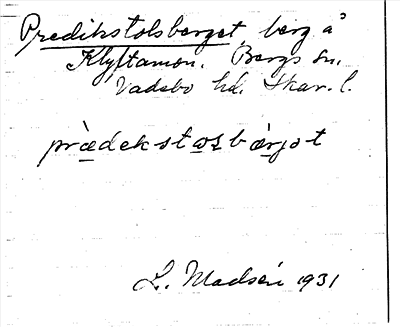 Predikstolsberget, berg å
Klyftamon. Bergs sn.
Vadsbo hd. Skar. l.
prædekstωsbærjət
L. Madsén 1931